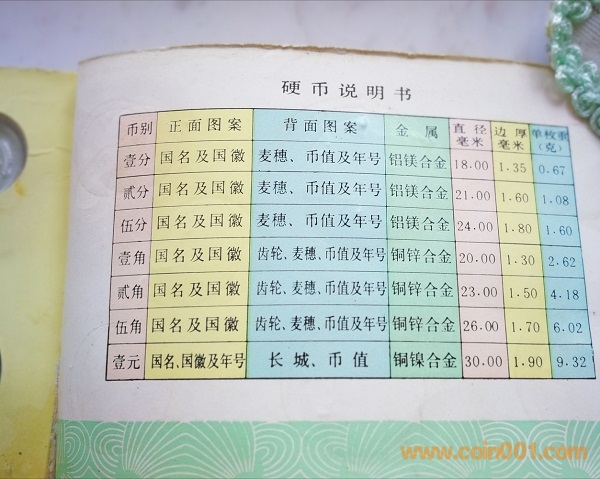 硬币说明书
币别 正面图案 背面图案 金属 直径毫米 边厚毫米 单枚重(克)
壹分 国名及国徽 麦穗、币值及年号 铝镁合金 18.00 1.35 0.67
贰分 国名及国徽 麦穗、币值及年号 铝镁合金 21.00 1.60 1.08
伍分 国名及国徽 麦穗、币值及年号 铝镁合金 24.00 1.80 1.60
壹角 国名及国徽 齿轮、麦穗、币值及年号 铜锌合金 20.00 1.30 2.62
贰角 国名及国徽 齿轮、麦穗、币值及年号 铜锌合金 23.00 1.50 4.18
伍角 国名及国徽 齿轮、麦穗、币值及年号 铜锌合金 26.00 1.70 6.02
壹元 国名、国徽及年号 长城、币值 铜镍合金 30.00 1.90 9.32
www.coin001.com